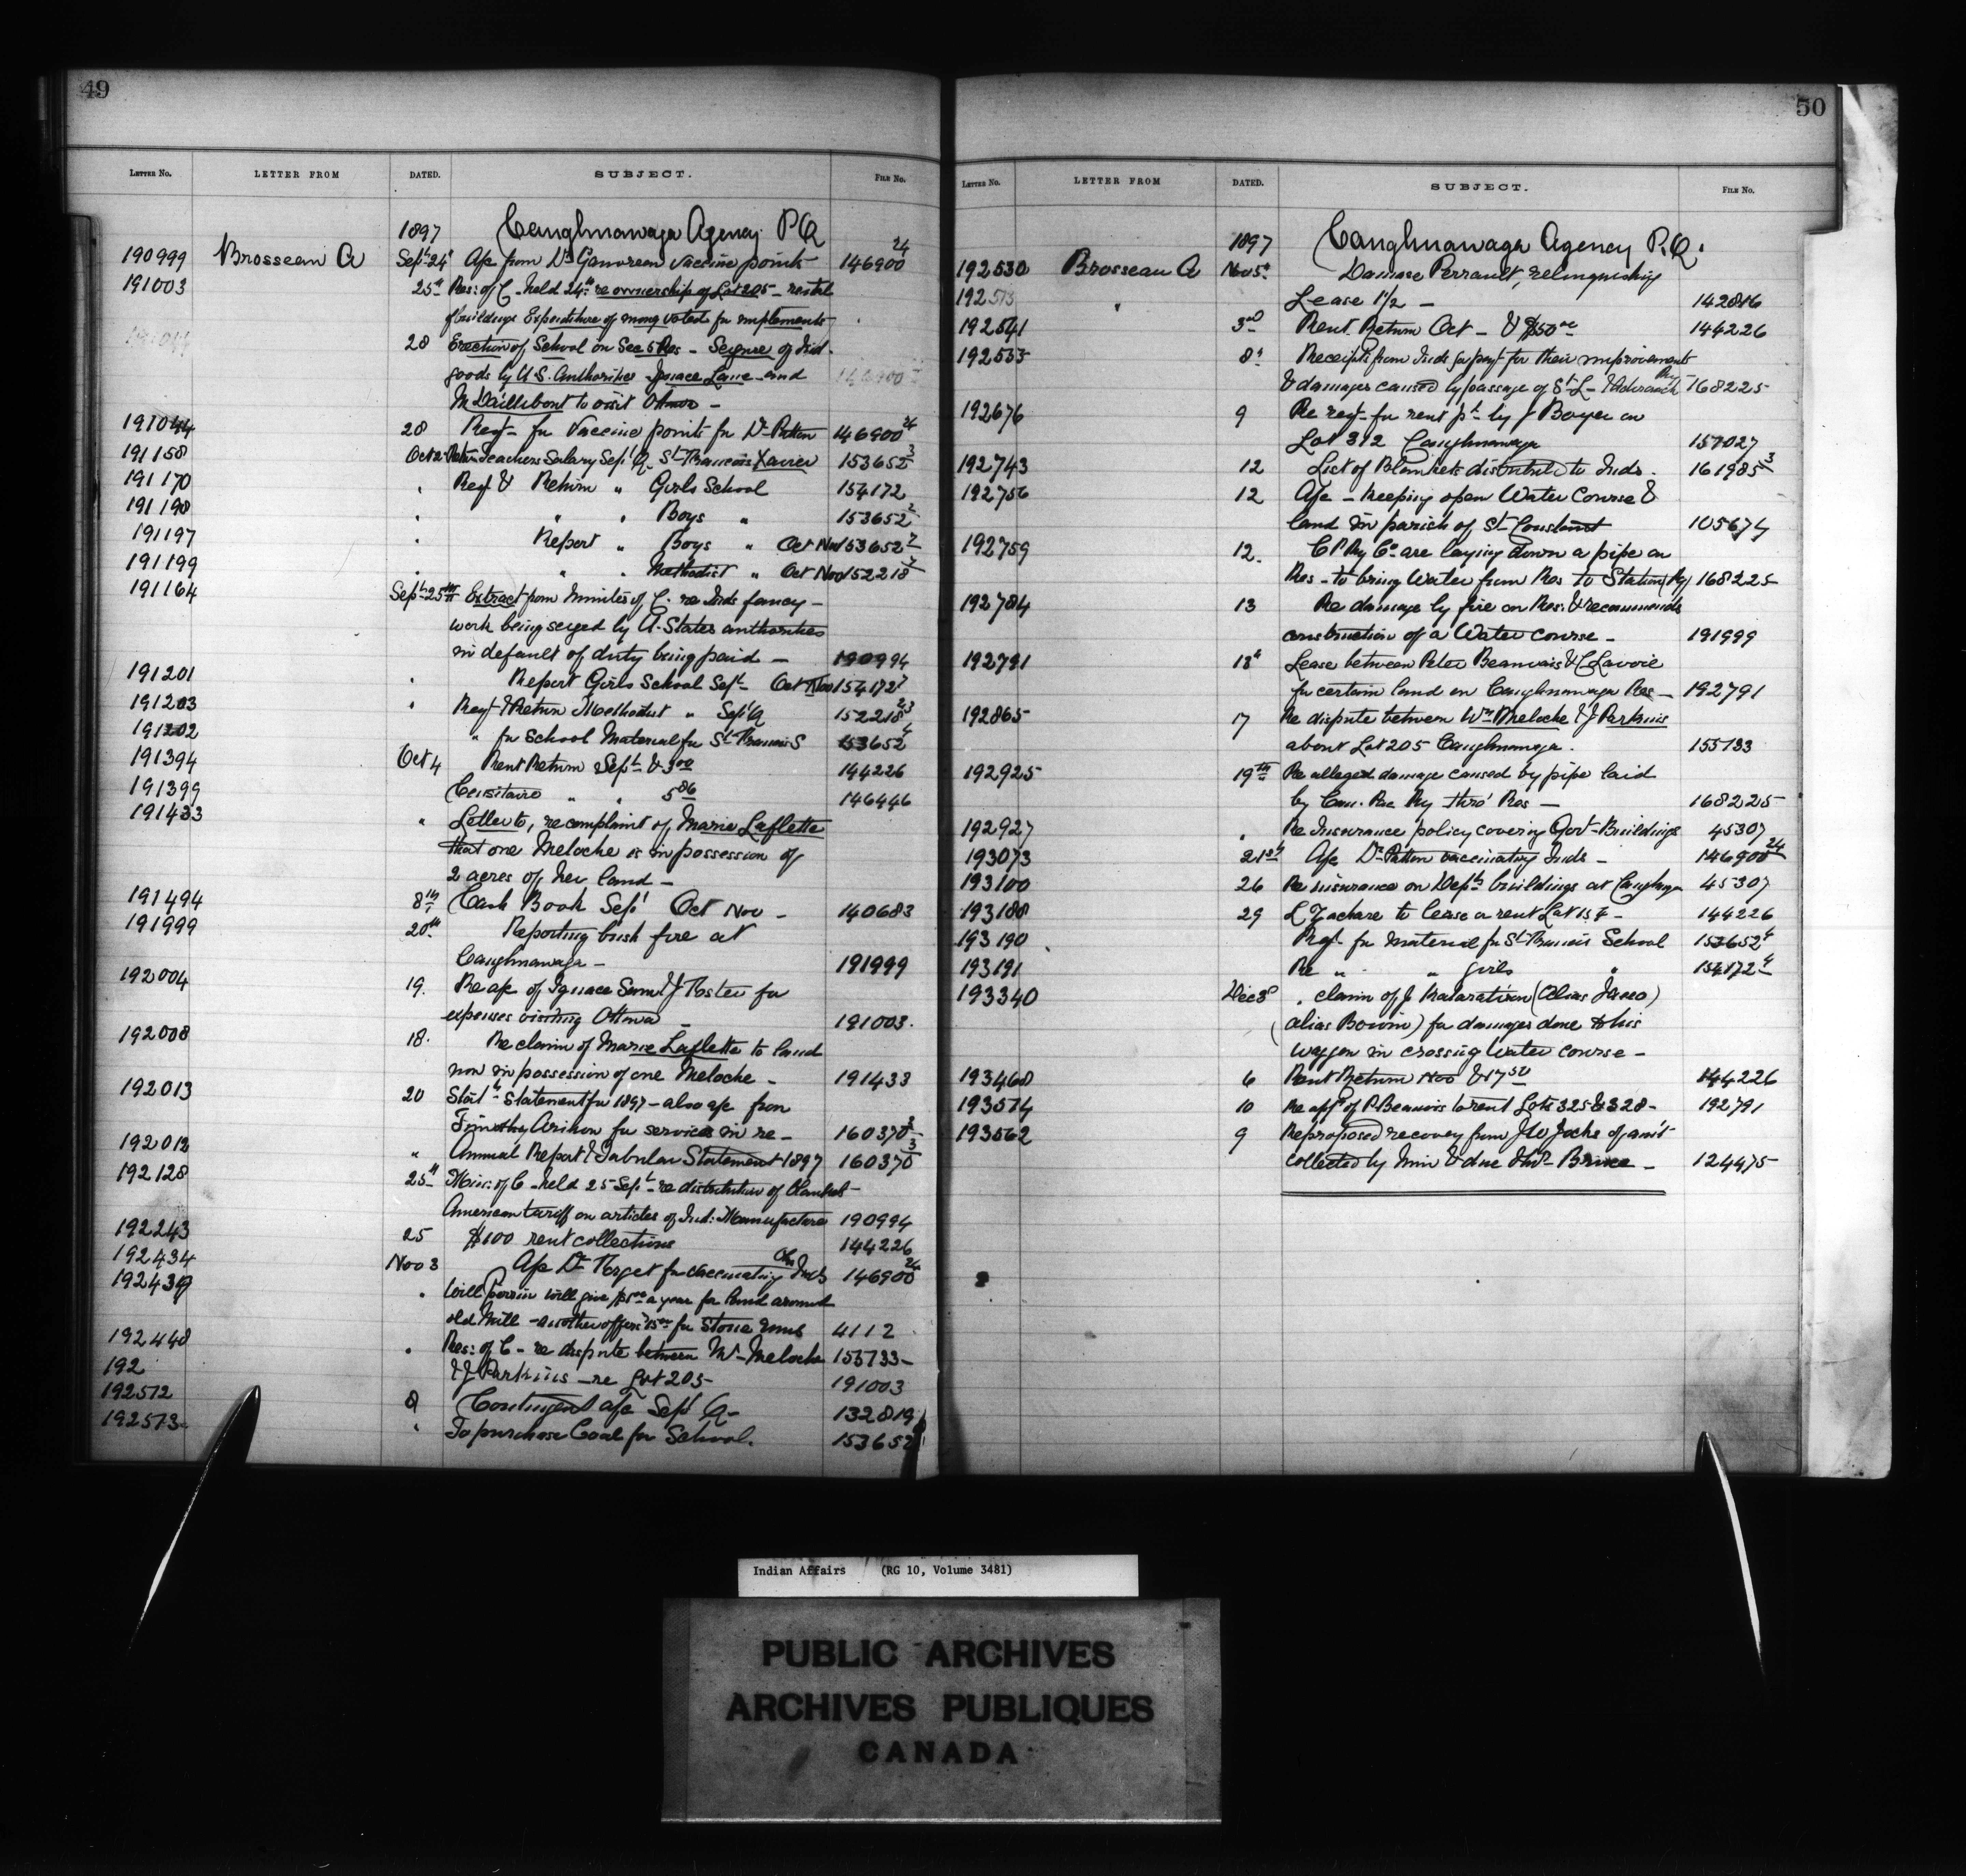 49
LETTER No. LETTER FROM DATED. SUBJECT. FILE No.
1897 Caughnawaga Agency P.Q.
190999 Brosseau A Sept 24 Ap from Dr vaccine points 146900 24
191003 25th Res: of C. held 24th re ownership of Lot 205 - rental
of buildings Expenditure of money voted for implements
28 Erection of School on Sec 5 Res - Seizure of Ind.
goods by U.S. Authorities and
to visit Ottawa -
191044 28 Reqt for Vaccine points for Dr Patton 146900 24
191158 Oct 2 Retn Teachers Salary Sept Q. St Francois Xavier 153652 3
191170 " Reqt & Return " Girls School 154172
191190 " " " Boys " 153652 2
191197 " Report " Boys " Oct Nov 153652 2
191199 " " " Methodist " Oct Nov 152218 2
191164 Sept 25th Extract from Minutes of C. re Inds fancy -
work being seized by U. States authorities
in default of duty being paid - 190994
191201 " Report Girls School Sept Oct Nov 154172
191203 " Reqt & Return Methodist " Sept Q 152218
191202 " for School Material for St Francois 153652 4
191394 Oct 4 Rent Return Sept & 3 00 144226
191399 Censitaire " " 5 86 146446
191433 " Letter to, re complaint of Marie Laflette
that one Meloche is in possession of
2 acres of her land -
191494 8th Cash Book Sept Oct Nov - 140683
191999 20th Reporting bush fire at
Caughnawaga - 191999
192004 19. Re ap of Ignace & J Foster for
expenses visiting Ottawa - 191003.
192008 18. Re claim of Marie Laflette to land
now in possession of one Meloche - 191433
192013 20 Statl Statement for 1897 - also ap from
Timothy for services in re - 160370 2
192012 " Annual Report & Tabular Statement 1897 160370 3
192128 25th Min: of C - held 25 Sept - re distribution of Blankets -
American tariff on articles of Ind: Manufacture 190994
192243 25 $100 rent collections 144226
192434 Nov 3 Ap Dr Forget for vaccinating Inds 146900 24
192439 " Will Perrin will give a year for land around
old Mill - another offers for Stone 4112
192440 " Res: of C - re dispute between Wm Meloche 155733 -
192 & J Parkins - re Lot 205 - 191003
192512 8 Contingent a/c Sept Q - 132819
192573 " To purchase Coal for School. 153652
50
LETTER No. LETTER FROM DATED. SUBJECT. FILE No.
1897 Caughnawaga Agency P.Q.
192530 Brosseau A Nov 5th Damase Perrault, relinquishing
192513 " Lease 1/2 - 142816
192541 3rd Rent Return Oct - & $50 00 144226
192535 8th Receipts from Inds for payt for their improvements
& damages caused by passage of St L - & Adirondack Ry - 168225
192676 9 Re reqt for rent pd by J Boyer on
Lot 312 Caughnawaga 157027
192743 12 List of Blankets distributed to Inds. 161985 3
192756 12 A/c - keeping open Water Course &
land in parish of St Constant 105674
192759 12. C P Ry Co are laying down a pipe on
Res - to bring Water from Res to Station (Ry) 168225
192784 13 Re damage by fire on Res. & recommends
construction of a Water Course - 191999
192791 18th Lease between Peter Beauvais & C Lavoie
for certain land on Caughnawaga Res - 192791
192865 17 Re dispute between Wm Meloche & J Parkins
about Lot 205 Caughnawaga. 155733
192925 19th Re alleged damage caused by pipe laid
by Can. Pac Ry thro' Res - 168225
192927 " Re Insurance policy covering Govt - Buildings 45307
193073 21st A/c Dr Patton vaccinating Inds - 146900 24
193100 26 Re insurance on Deptl buildings at Caughnga 45307
193188 29 L Zachare to lease a rent Lot 144226
193190 Reqt for material for St Francois School 153652 4
193191 Re " " girls " 154172 4
193340 Dec 3d " claim of J (alias Jocco)
(alias Boivin) for damages done to his
waggon in crossing Water course -
193468 6 Rent Return Nov & 17 50 144226
193514 10 Re appn of P. Beauvais to rent Lots 325 & 328 - 192791
193562 9 Re proposed recovery from J W Jocks of amt
collected by him & due Brice - 124475
Indian Affairs (RG 10, Volume 3481)
PUBLIC ARCHIVES
ARCHIVES PUBLIQUES
CANADA